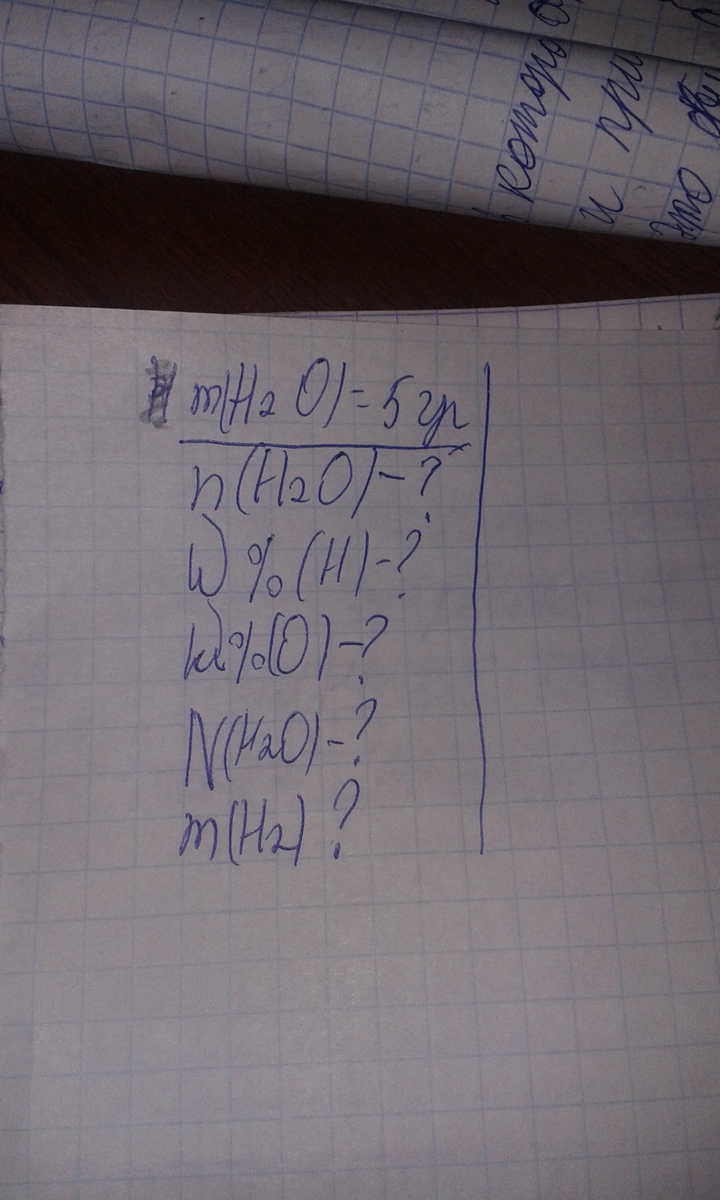 которо
и при
это
m(H2O)=5гр
n(H2O)-?
W%(H)-?
W%(O)-?
N(H2O)-?
m(H2)?